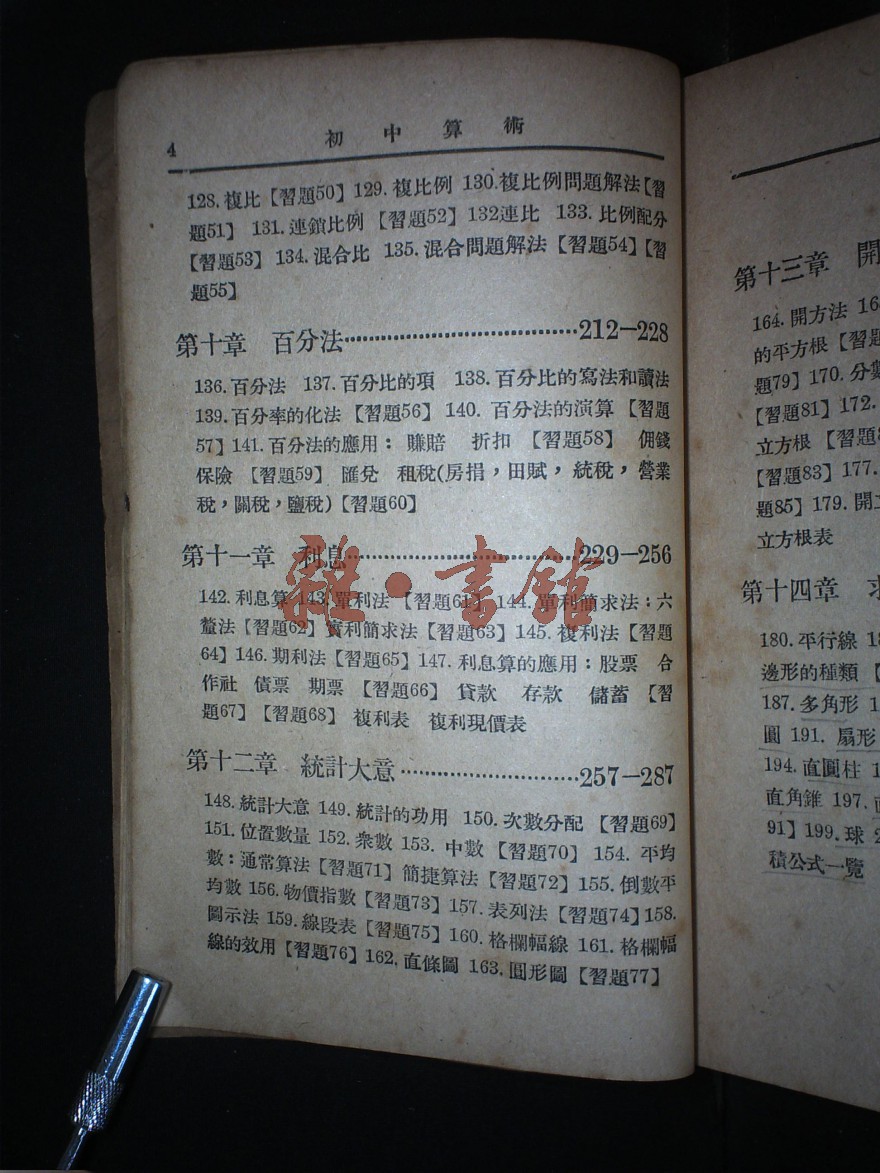 4
初中算術
128.複比【習題50】129.複比例 130.複比例問題解法【習
題51】 131.連鎖比例【習題52】132連比 133.比例配分
【習題53】 134.混合比 135.混合問題解法【習題54】【習
題55】
第十章 百分法……………………………212—228
136.百分法 137.百分比的項 138.百分比的寫法和讀法
139.百分率的化法【習題56】 140. 百分法的演算【習題
57】141.百分法的應用：賺賠 折扣 【習題58】 佣錢
保險 【習題59】 匯兌 租稅(房捐，田賦，統稅，營業
稅，關稅，鹽稅)【習題60】
第十一章 利息……………………………229—256
142.利息算 143.單利法 【習題61】 144.單利簡求法：六
釐法【習題62】實利簡求法【習題63】 145.複利法【習題
64】146.期利法【習題65】147.利息算的應用：股票 合
作社 債票 期票 【習題66】 貸款 存款 儲蓄 【習
題67】【習題68】 複利表 複利現價表
第十二章 統計大意……………………257—287
148.統計大意 149.統計的功用 150.次數分配 【習題69】
151.位置數量 152.衆數 153.中數【習題70】 154. 平均
數：通常算法【習題71】簡捷算法【習題72】155.倒數平
均數 156.物價指數【習題73】157.表列法【習題74】158.
圖示法 159.線段表【習題75】160.格欄幅線 161.格欄幅
線的效用【習題76】162.直條圖 163.圓形圖【習題77】
雜·書館
第十三章 開
164.開方法 16
的平方根【習題
題79】170.分數
【習題81】172.
立方根【習題
【習題83】177.
題85】179.開立
立方根表
第十四章 求
180.平行線 18
邊形的種類【
187.多角形 1
圓 191.扇形
194.直圓柱 1
直角錐 197.
91】199.球 2
積公式一覽